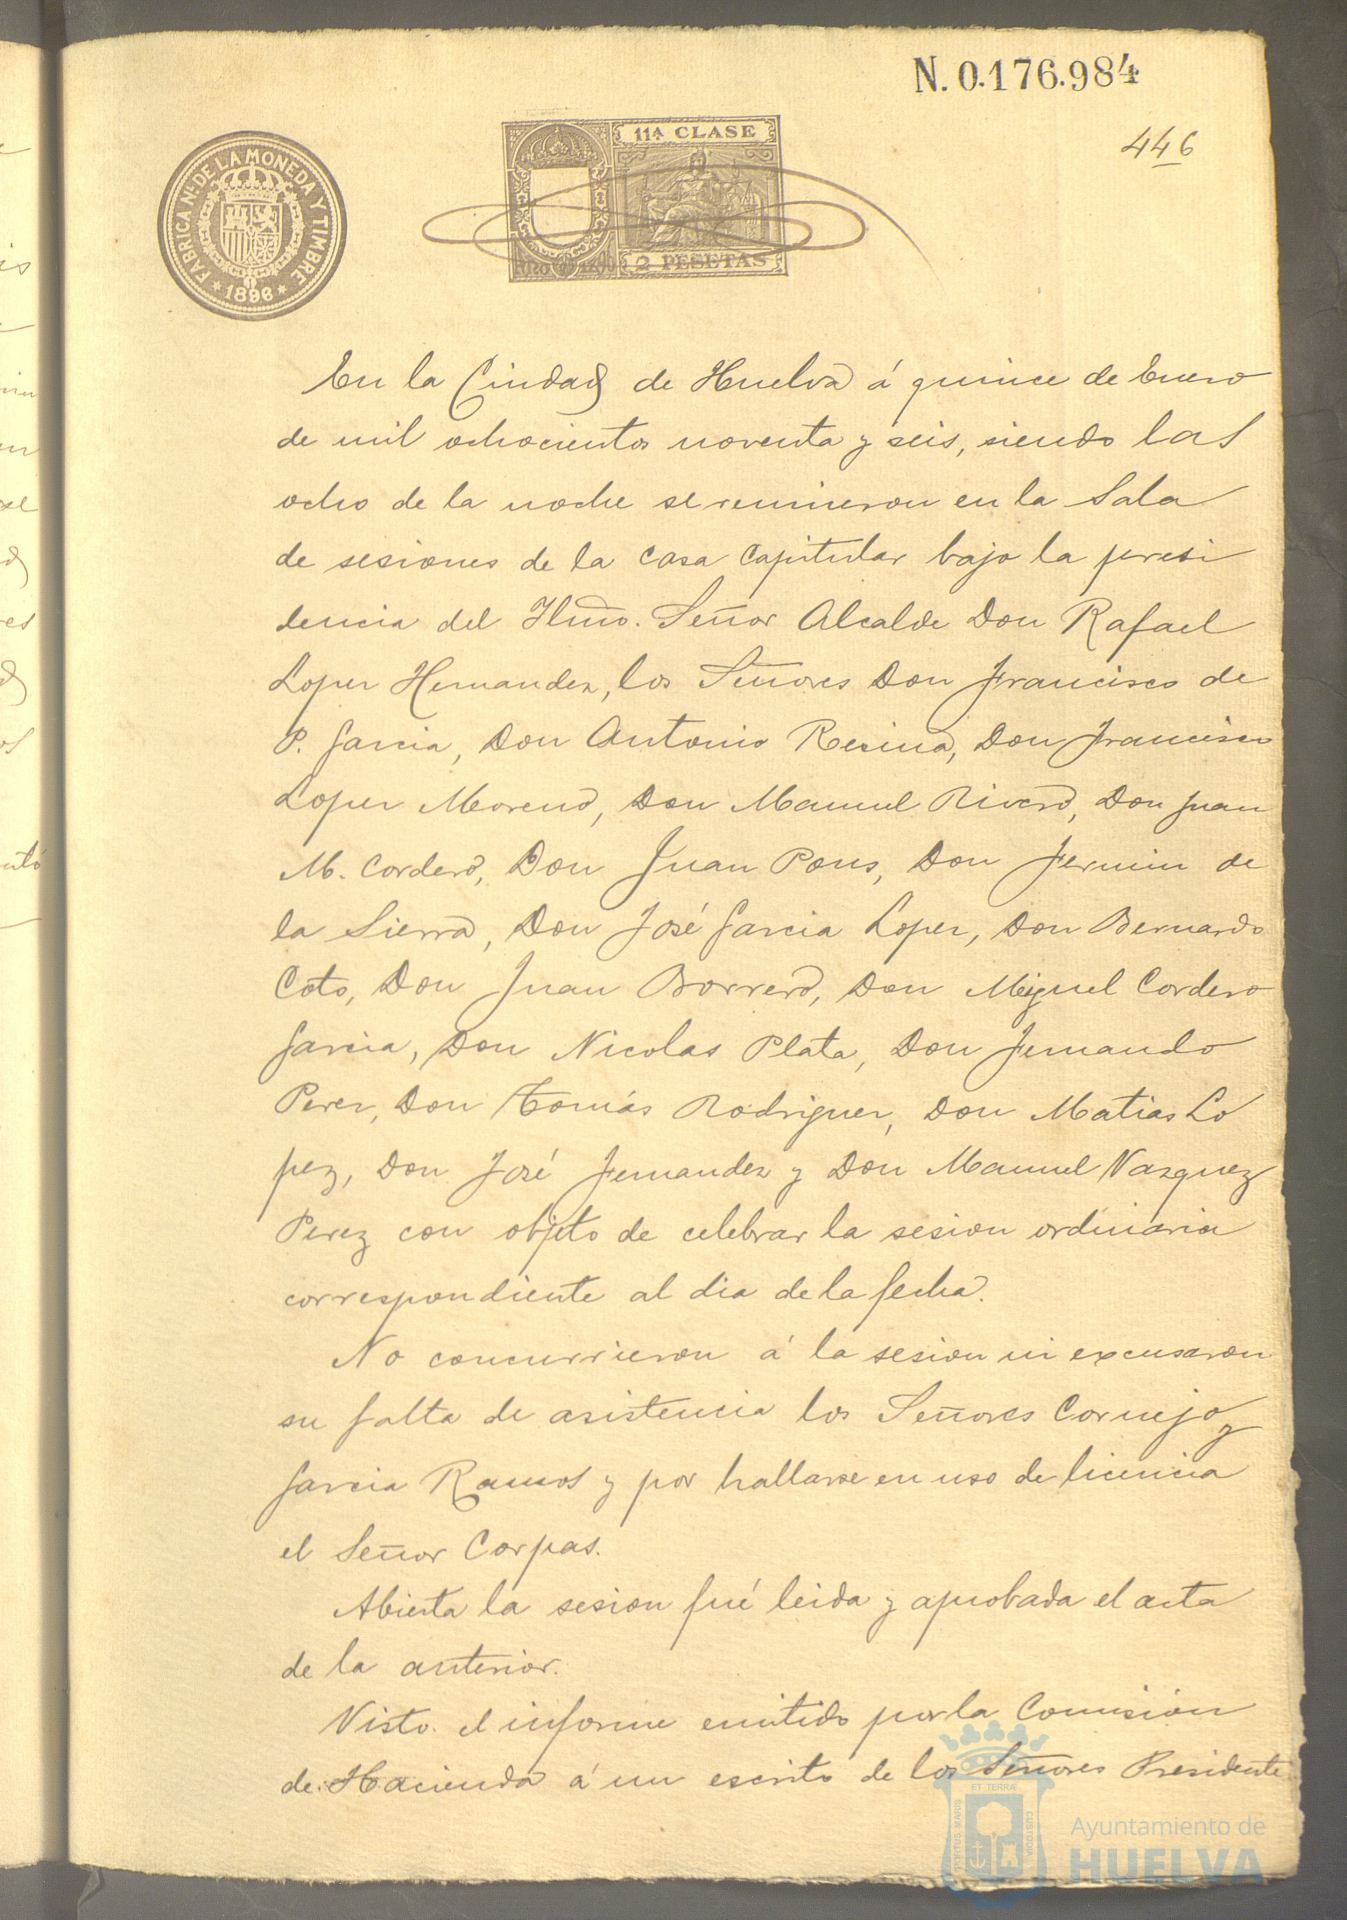 N. 0.176.984
446
FABRICA NL. DE LA MONEDA Y TIMBRE
* 1896 *
11ª CLASE
2 PESETAS
En la Ciudad de Huelva á quince de Enero
de mil ochocientos noventa y seis, siendo las
ocho de la noche se reunieron en la Sala
de sesiones de la casa capitular bajo la presi
dencia del Iltmo. Señor Alcalde Don Rafael
Lopez Hernandez, los Señores Don Francisco de
P. Garcia, Don Antonio Resina, Don Francisco
Lopez Moreno, Don Manuel Rivero, Don Juan
M. Cordero, Don Juan Pons, Don Fermin de
la Sierra, Don José Garcia Lopez, Don Bernardo
Coto, Don Juan Borrero, Don Miguel Cordero
Garcia, Don Nicolas Plata, Don Fernando
Perez, Don Tomás Rodriguez, Don Matias Ló
pez, Don José Fernandez y Don Manuel Vazquez
Perez con objeto de celebrar la sesion ordinaria
correspondiente al dia de la fecha.
No concurrieron á la sesion ni excusaron
su falta de asistencia los Señores Cornejo y
Garcia Ramos y por hallarse en uso de licencia
el Señor Corpas.
Abierta la sesion fué leida y aprobada el acta
de la anterior.
Visto el informe emitido por la Comisión
de Hacienda á un escrito de los Señores Presidente
ET TERRA
PORTUS MARIS
CUSTODIA
Ayuntamiento de
HUELVA